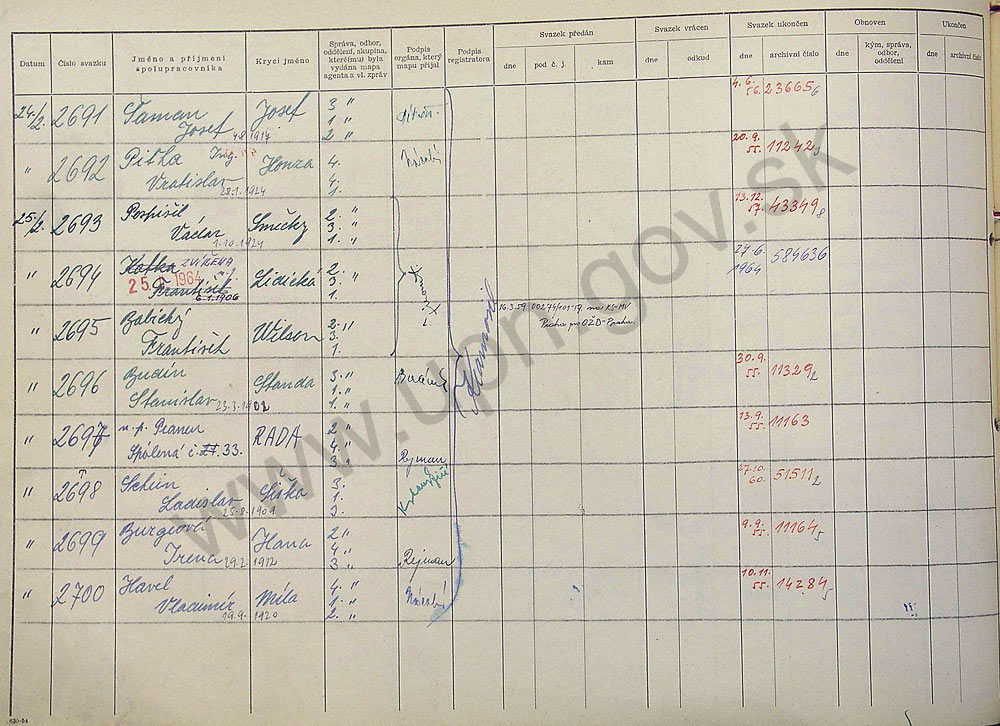 Datum
Číslo svazku
Jméno a příjmení spolupracovníka
Krycí jméno
Správa, odbor, oddělení, skupina, které(mu) byla vydána mapa agenta a vl. zpráv
Podpis orgána, který mapu přijal
Podpis registratora
Svazek předán
dne pod č. j. kam
Svazek vrácen
dne odkud
Svazek ukončen
dne archivní číslo
Obnoven
dne kým, správa, odbor, oddělení
Ukončen
dne archivní číslo
24/2. 2691 Josef 3 " 4.6. 56. 23665 6
Josef 4.8.1914 1 "
2 "
" 2692 Pitha Honza 4. 20.9. 55. 11242
Vratislav 28.1.1924 4.
1.
25/2. 2693 Pospíšil Smečky 2. " 13.12. 57. 43349 8
Václav 1.10.1924 3. "
1. "
" 2694 Kafka ZVÍŘENA Lidická 2. 27.6. 1964 589636
25. 1964 František 3.
6.1.1906 1.
" 2695 Babický Wilson 2. " 16.3.59
František 3. Praha pro OŽD-Praha.
1.
" 2696 Budín Standa 3. " 30.9. 55. 11329 2
Stanislav 23.3.1902 1. "
1. "
" 2697 RADA 2 " 13.9. 55. 11163
Spálená č. 33. 4. "
3. Rejman
" 2698 Schün Šiška 3. 27.10. 60. 51511 2
Ladislav 25.8.1909 1.
3.
" 2699 Burgeová Hana 2 " 9.9. 55. 11164 5
Irena 29.2 1912 4 "
3 " Rejman
" 2700 Havel Míla 4. " 10.11. 55. 14284 5
Vladimír 19.9. 1920 1. "
2. "
630-54
www.upn.gov.sk